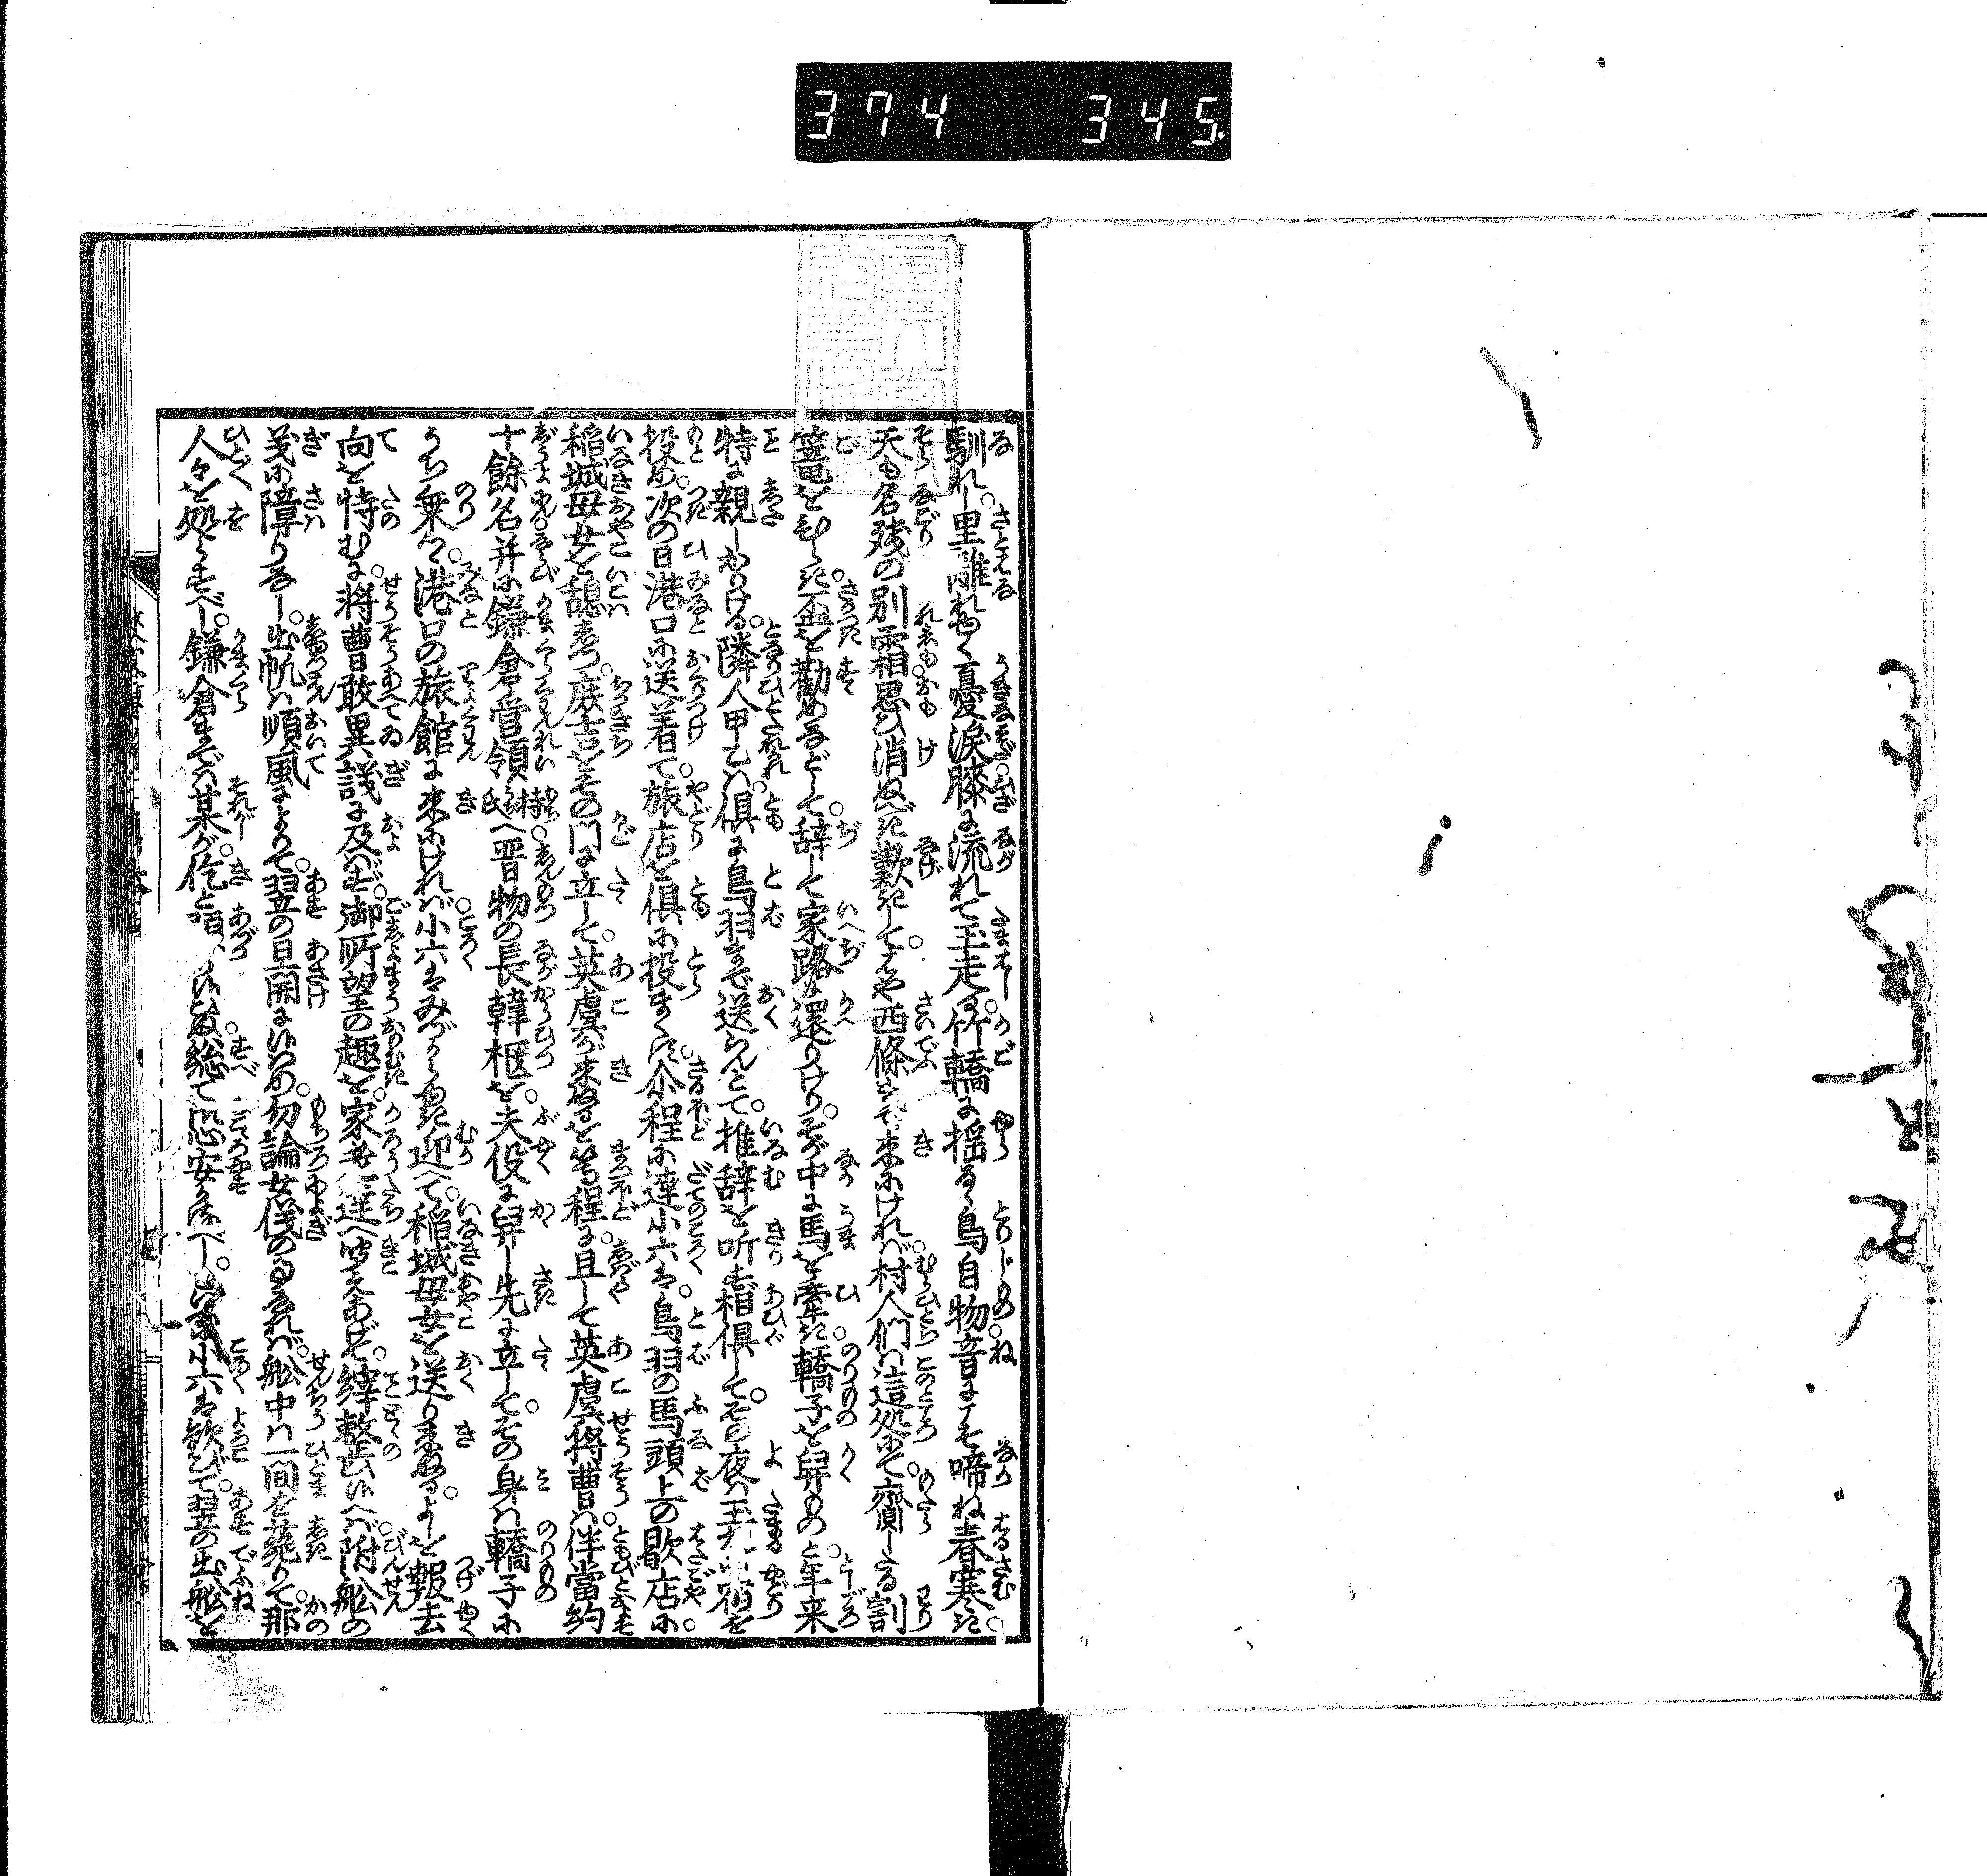 374 345
馴れし里離れゆく憂涙膝に流れて玉走る竹轎に揺るゝ鳥自物音にこそ啼ね春寒き
天も名残の別霜思ひ消ぬべき歎きしてはや西條まで来にければ村人們は這処にて齎したる割
篭をひらき盃を勧めなどして辞して家路に還りけりそが中に馬を牽き轎子を舁ものと年来
特に親しかりける隣人甲乙は倶に鳥羽まで送らんとて推辞を听ず相倶してその夜は玉丸に宿を
投め次の日港口に送着て旅店を倶に投まくす尒程に達小六は鳥羽の馬頭上の歇店に
稲城母女を憩はしつ庶吉をその門に立して英虞が来ぬるを等程に且して英虞将曹は伴當約
十餘名并に鎌倉管領持氏へ晋物の長韓櫃を夫役に舁し先に立してその身は轎子に
うち乗つ港口の旅館に来にければ小六はみづから出迎へて稲城母女を送り来ぬるよしを報去
向を恃むに将曹敢異議に及ばず御所望の趣を家老達へ聞えあげて縡整ひ候へば附舩の
義に障りなし出帆は順風によりて翌の旦開に候めり勿論女儀の事なれば舩中は一間を範りて那
人々を処らすべし鎌倉までは某が仡と預り候ひぬ総て恐安かるべし小六は歓びて翌の出舩を